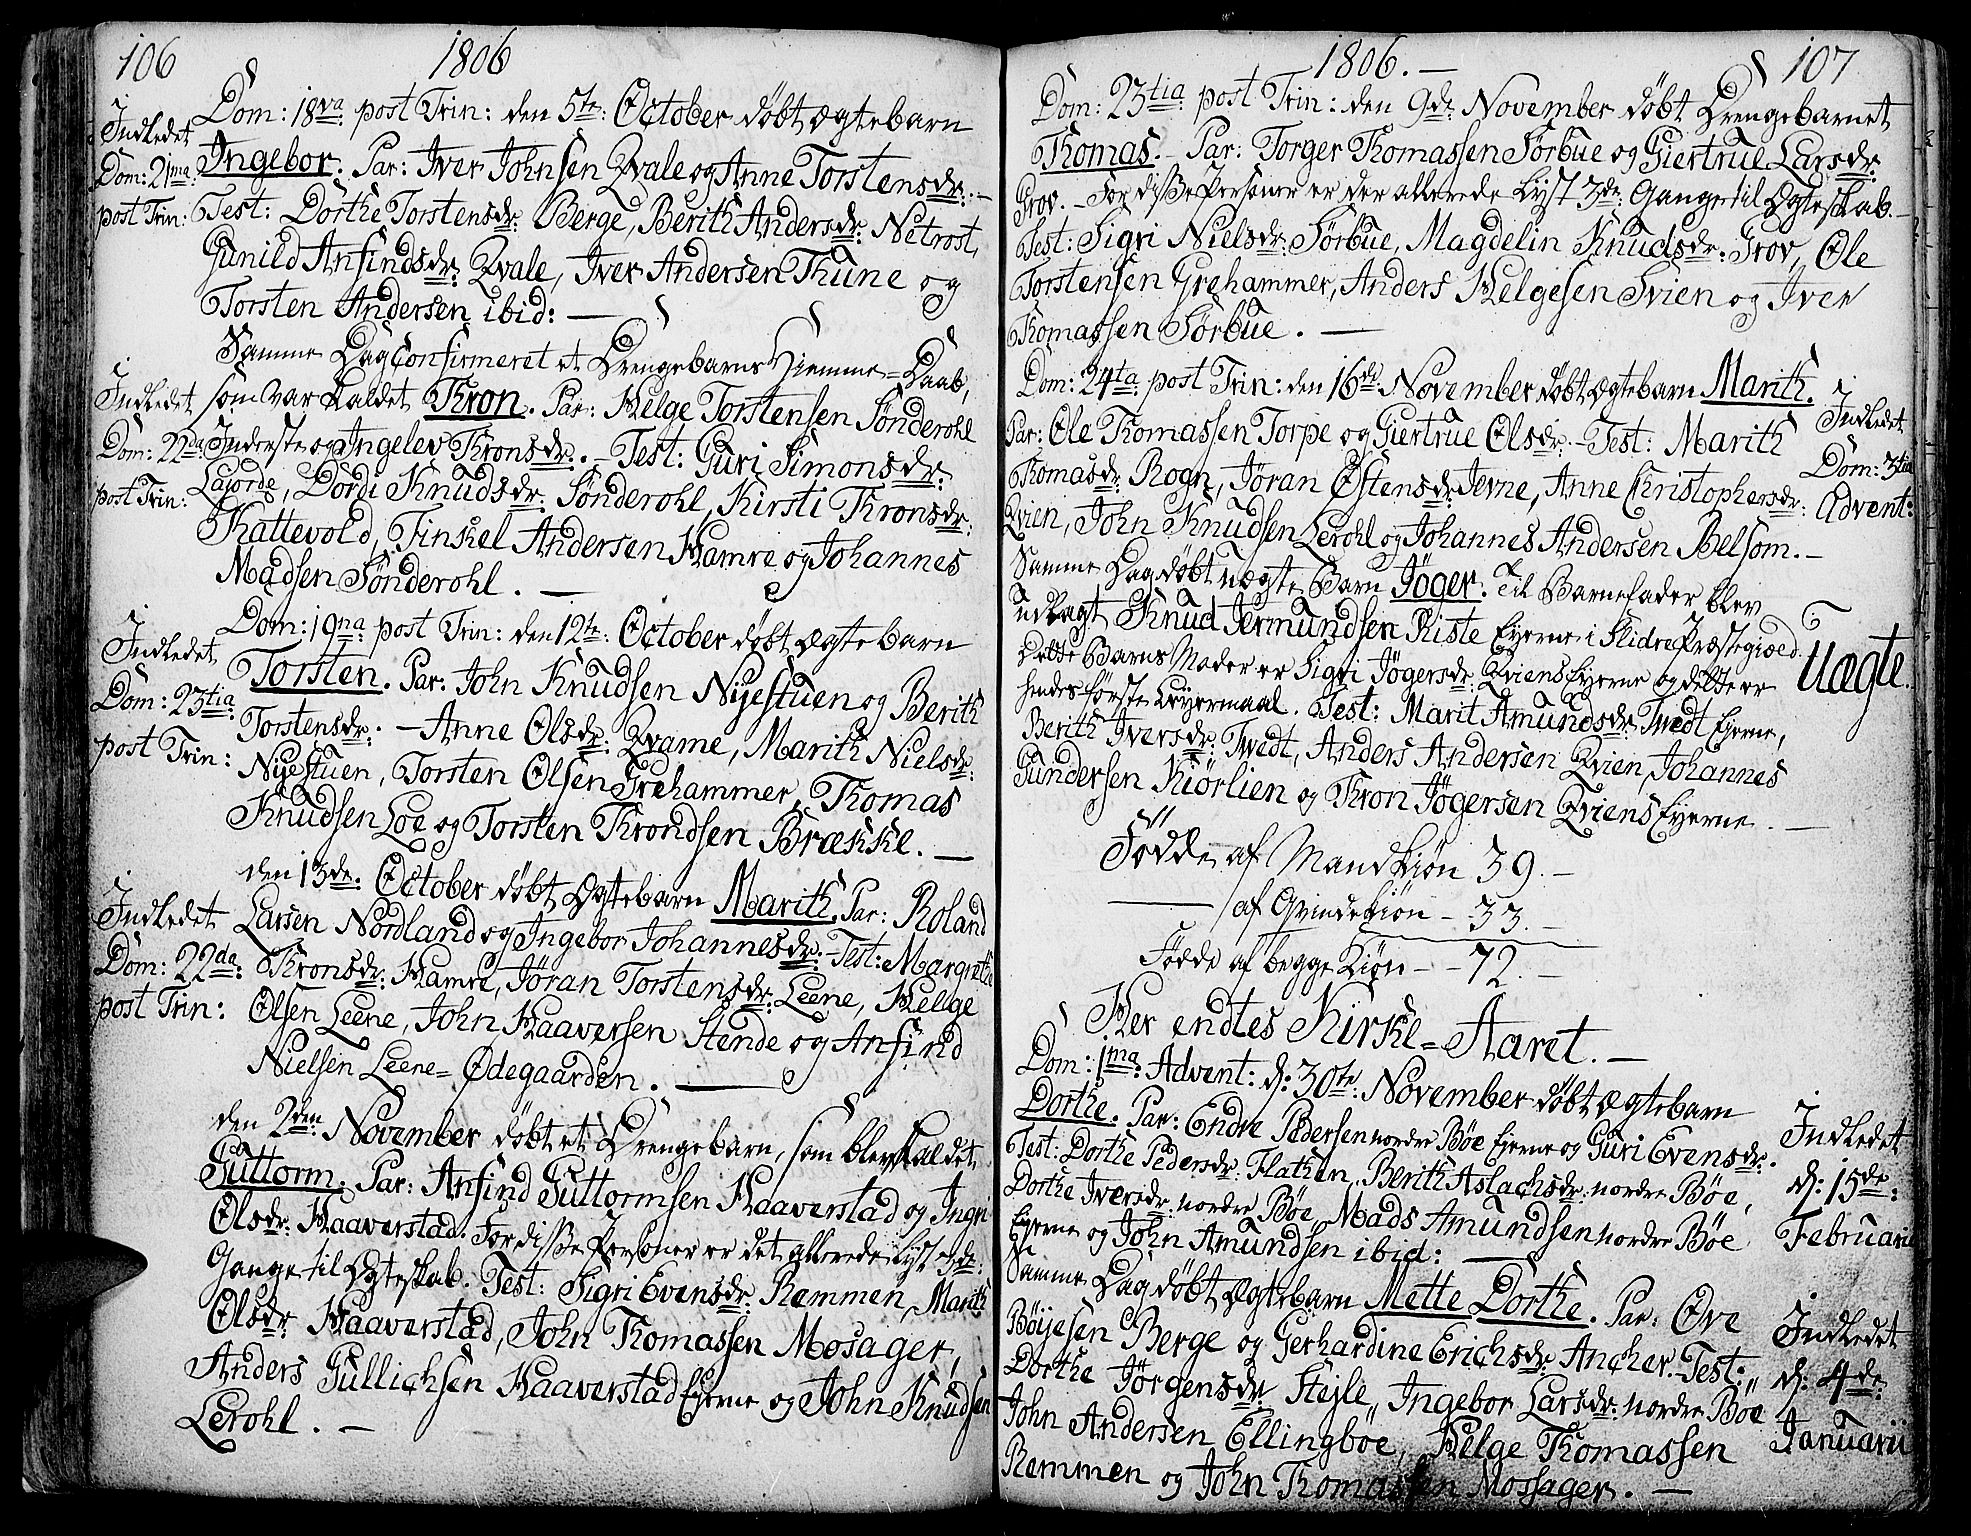 106 1806
Dom: 18va post Trin: den 5te October døbt Ægtebarn
Indledet
Dom: 21ma:
post Trin:
Ingebor. Par: Iver Johnsen Qvale og Anne Torstensdr. –
Test: Dorthe Torstensdr: Berge, Berith Andersdr: Netrost,
Gunild Anfindsdr: Qvale, Iver Andersen Thune og
Torsten Andersen ibid: —
Samme Dag confirmeret et Drengebarns Hiemme=Daab,
Indledet
Dom: 22da
post Trin:
som var kaldet Thron. Par: Helge Torstensen Sønderohl
Inderste og Ingelev Thronsdr. – Test: Guri Simonsdr:
Lajorde, Dordi Knudsdr: Sønderohl, Kirsti Thronsdr:
Kattevold, Finkel Andersen Hamre og Johannes
Madsen Sønderohl. —
Dom: 19na post Trin: den 12te: October døbt Ægtebarn
Indledet
Dom: 23tia:
post Trin:
Torsten. Par: John Knudsen Nyestuen og Berith
Torstensdr: – Anne Olsdr: Qvame, Marith Nielsdr:
Nyestuen, Torsten Olsen Grehammer, Thomas
Knudsen Loe og Torsten Throndsen Brække. —
den 13de: October døbt Ægtebarn Marith. Par: Roland
Indledet
Dom: 22da:
post Trin:
Larsen Nordland og Ingebor Johannesdr: – Test: Margrethe
Thronsdr: Hamre, Jøran Torstensdr: Leene, Helge
Olsen Leene, John Haaversen Stende og Anfind
Nielsen Leene=Ødegaarden. —
den 2den November døbt et Drengebarn, som blev kaldet
Guttorm. Par: Anfind Guttormsen Haaverstad og Ingri
Olsdr: Haaverstad. For disse Personer er det allerede lyst 3de:
Gange til Ægteskab. Test: Sigri Evensdr: Remmen, Marith
Olsdr: Haaverstad, John Thomassen Mosager,
Anders Gullichsen Haaverstad Eyerne og John Knudsen
Lerohl. —
1806. — 107
Dom: 23tia post Trin: den 9de November døbt Drengebarnet
Thomas. – Par: Torger Thomassen Sørbue og Giertrue Larsdr:
Grov. – For disse Personer er der allerede lyst 3de: Gange til Ægteskab. –
Test: Sigri Nielsdr: Sørbue, Magdelin Knudsdr: Grov, Ole
Torstensen Grehammer, Anders Helgesen Svien og Iver
Thomassen Sørbue. —
Dom: 24ta post Trin: den 16de November døbt Ægtebarn Marith.
Indledet
Dom: 3tia
Advent:
Par: Ole Thomassen Torpe og Giertrue Olsdr: – Test: Marith
Thomasdr: Rogn, Jøran Østensdr: Jevne, Anne Christophersdr:
Qvien, John Knudsen Lerohl og Johannes Andersen Belsom. –
Samme Dag døbt uægte Barn Jøger. Til Barnefader blev
udlagt Knud Jermundsen Riste Eyerne i Slidre Præstegiæld.
Uægte.
Dette Barns Moder er Sigri Jøgersdr: Qviens Eyerne og dette er
hendes første Leyermaal. Test: Marit Amundsdr: Twedt Eyerne,
Berith Iversdr: Twedt, Anders Andersen Qvien, Johannes
Gundersen Kiørlien og Thron Jøgersen Qviens Eyerne. —
Fødde af Mandkiøn 39. –
— af Qvindekiøn – 33. –
Fødde af begge Kiøn – – 72. –
Her endtes Kirke=Aaret. —
Dom: 1ma: Advent: d: 30te: November døbt Ægtebarn
Indledet
d: 15de:
Februarii
Dorthe. Par: Endre Pedersen nordre Bøe Eyerne og Guri Evensdr.
Test: Dorthe Pedersdr: Flathen, Berith Aslachsdr: nordre Bøe,
Dorthe Iversdr: nordre Bøe, Mads Amundsen nordre Bøe
Eyerne og John Amundsen ibid: —
Samme Dag døbt Ægtebarn Mette Dorthe. Par: Ove
Indledet
d: 4de:
Januarii
Böyesen Berge og Gerhardine Erichsdr: Ancher. – Test:
Dorthe Jørgensdr: Stejle, Ingebor Larsdr: nordre Bøe
John Andersen Ellingbøe, Helge Thomassen
Remmen og John Thomassen Mossager. —